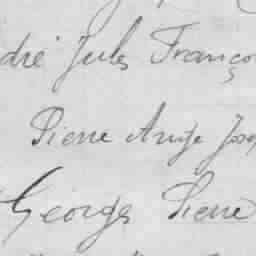 dré Jules Franço
Pierre Ange Jos
Georges Pierre